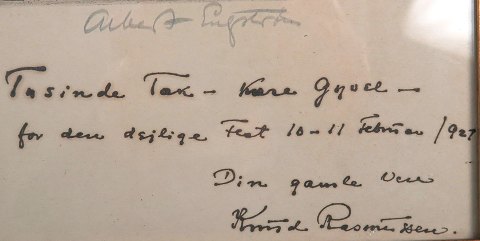 Albert Engström
Tusinde Tak – Kære Gnoel –
for den dejlige Fest 10–11 Februar /927
Din gamle Ven
Knud Rasmussen.